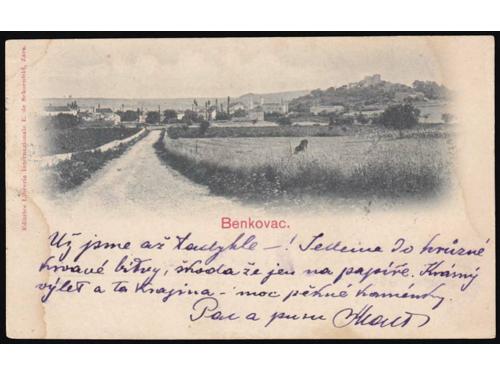 Editrice Libreria Internazionale E. de Schoenfeld, Zara.
Benkovac.
Už jsme až tadyhle – ! Jedeme do hrůzné
krvavé bitvy, škoda že jen na papíře. Krásný
výlet a ta krajina – moc pěkné kaménky.
Pac a pusu